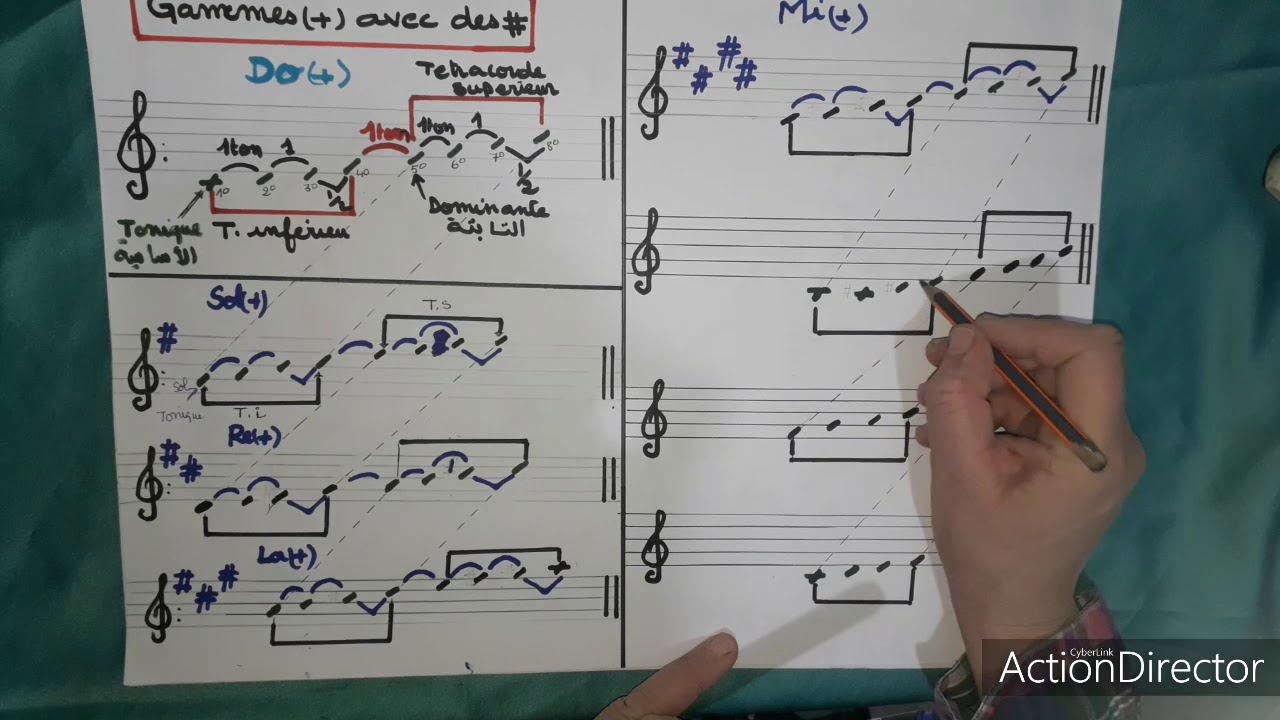 Gammes(+) avec des #
Do(+)
Tetracorde
superieur
1ton 1 1ton 1ton 1
1/2 1/2
1° 2° 3° 4° 5° 6° 7° 8°
Tonique
T. inférieu
Dominante
الثابتة
Sol(+)
T.s
Sol
Tonique
T.i
Re(+)
1
La(+)
Mi(+)
CyberLink
ActionDirector